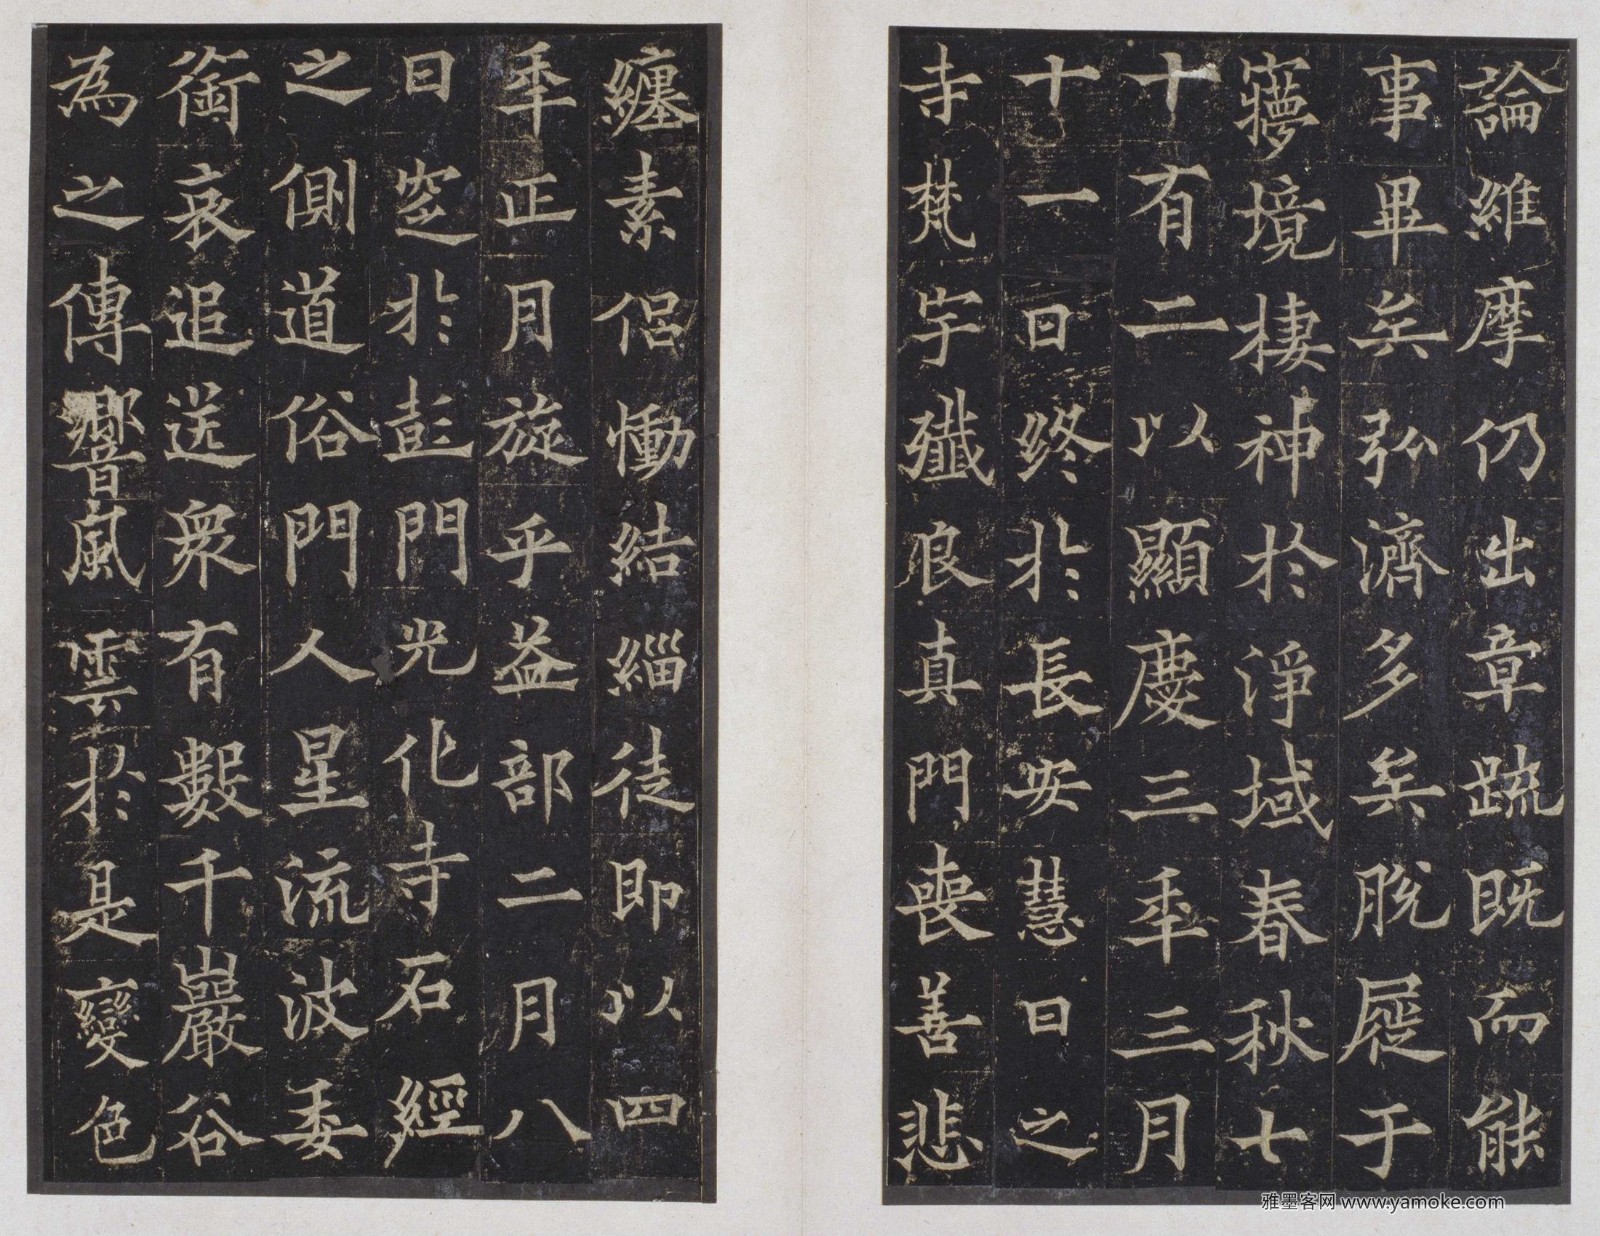 論維摩仍出章䟽既而能
事畢矣弘濟多矣脫屣于
寢境棲神於淨域春秋七
十有二以顯慶三秊三月
十一日終於長安慧日之
寺梵宇殲良真門喪善悲
纏素侶慟結緇徒即以四
秊正月旋乎益部二月八
日窆於彭門光化寺石經
之側道俗門人星流波委
銜哀追送衆有數千巖谷
為之傳響風雲於是變色
雅墨客网 www.yamoke.com